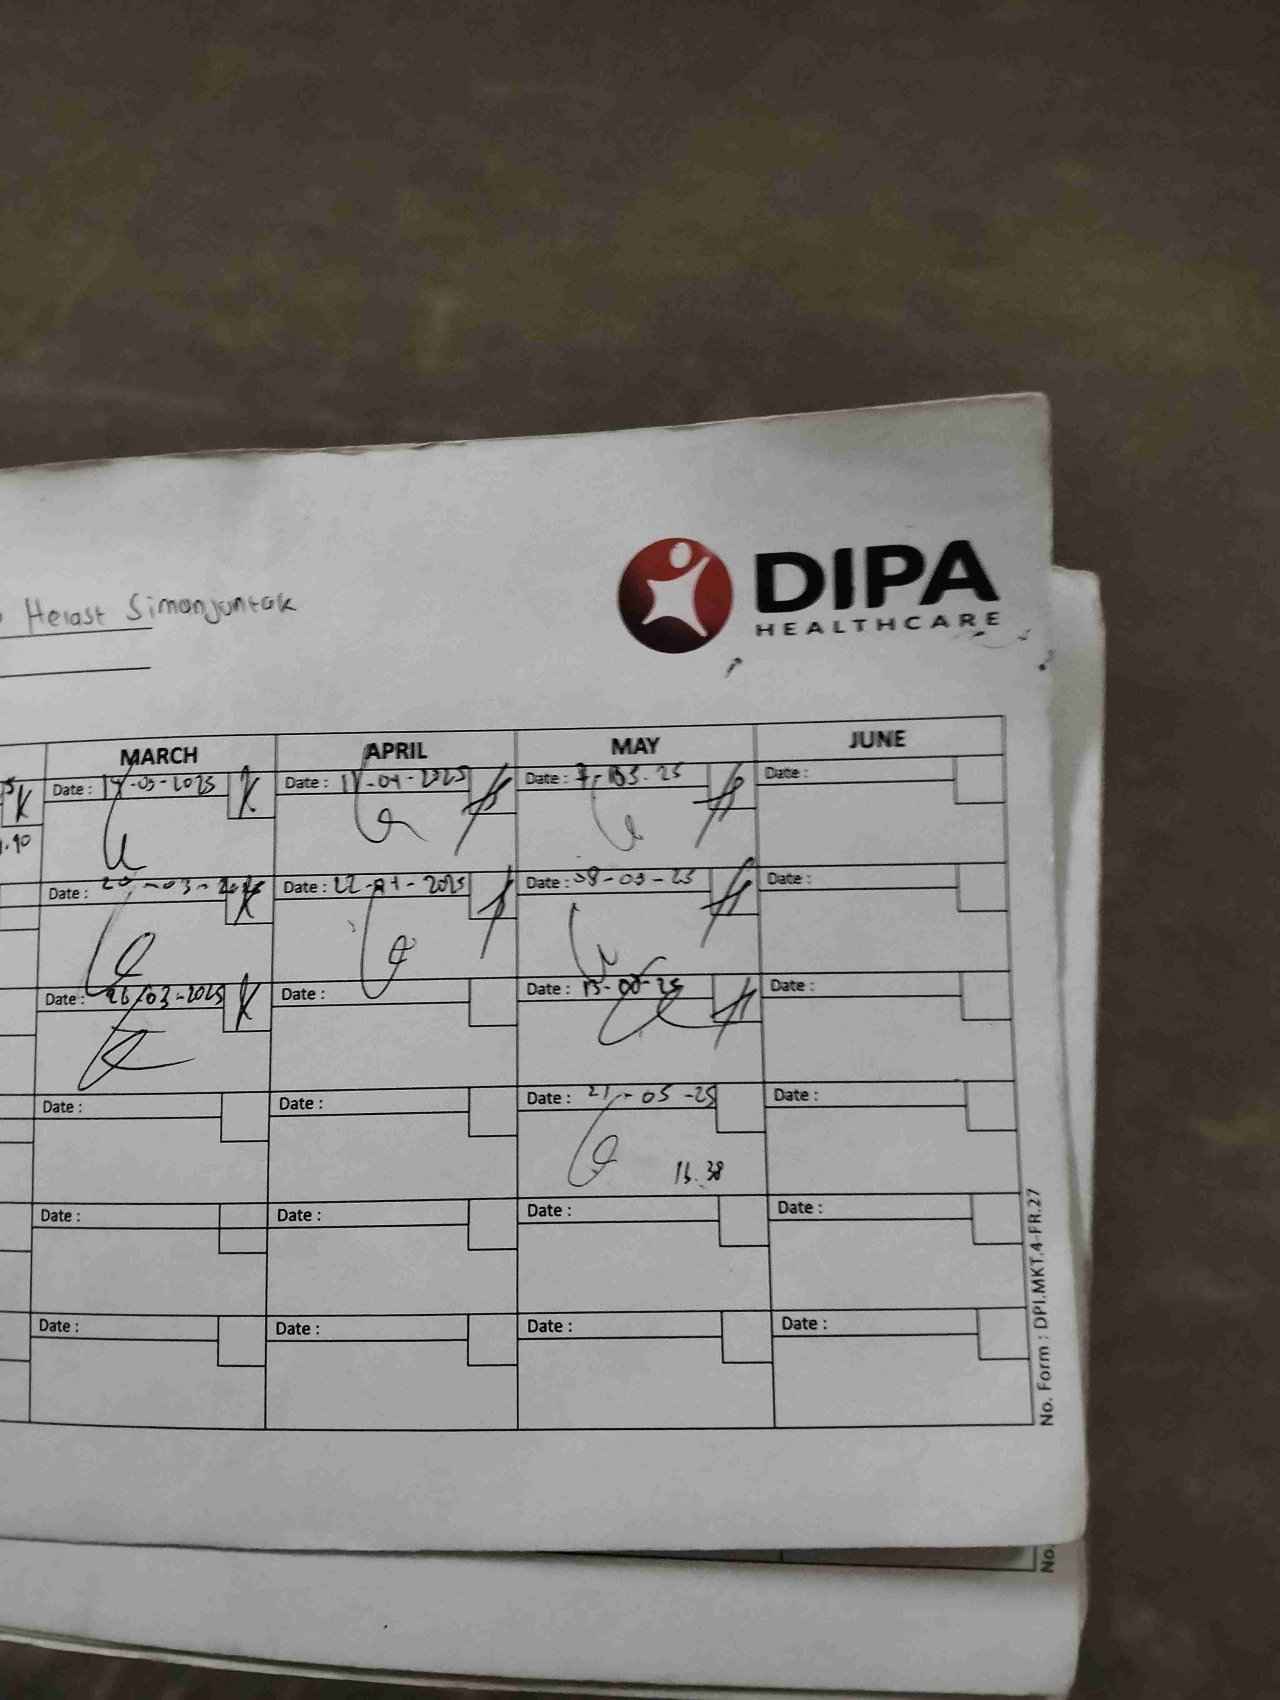 Herast Simanjuntak
DIPA
HEALTHCARE
MARCH APRIL MAY JUNE
Date : 17-03-2025 Date : 17-04-2025 Date : 7- 05-25 Date :
Date : 20-03-2025 Date : 22-04-2025 Date : 08-05-25 Date :
Date : 26/03-2025 Date : Date : 15- -25 Date :
Date : Date : Date : 21-05-25 Date :
13.38
Date : Date : Date : Date :
Date : Date : Date : Date :
No. Form : DPI.MKT.4-FR.27
No.